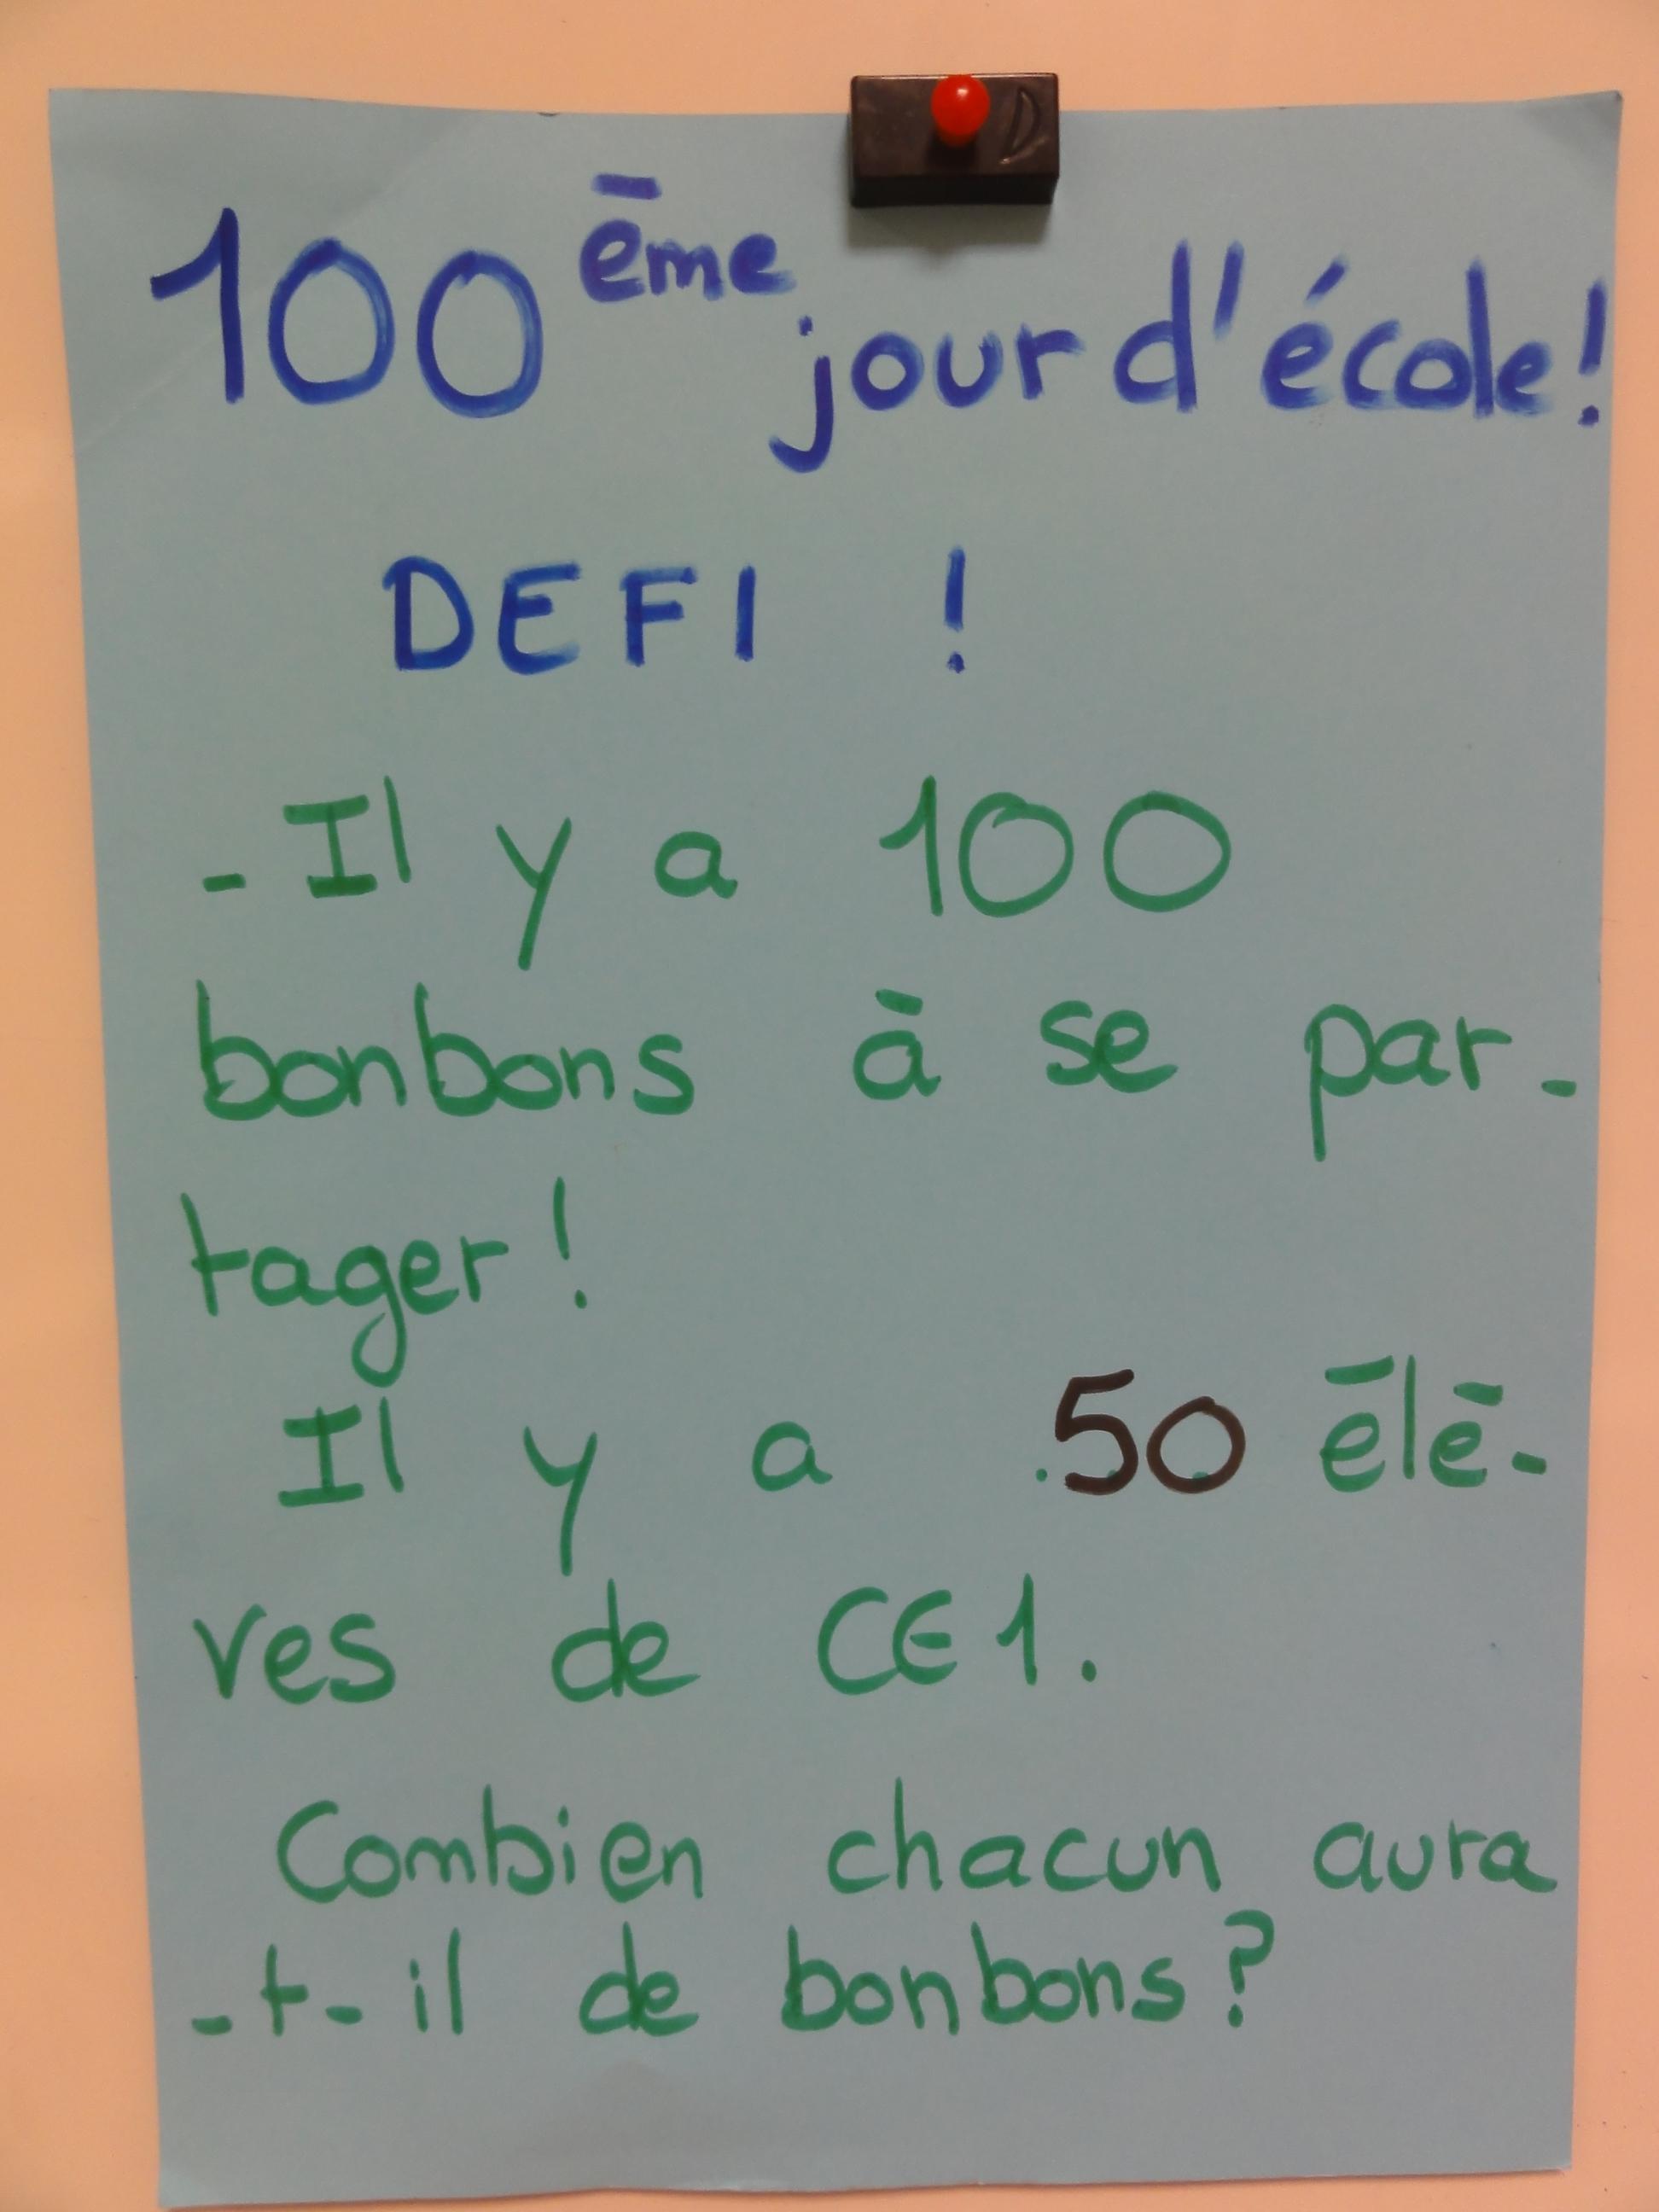 100ème jour d'école!
DEFI !
- Il y a 100
bonbons à se par-
tager!
Il y a .50 élè-
ves de CE1.
Combien chacun aura
-t-il de bonbons?